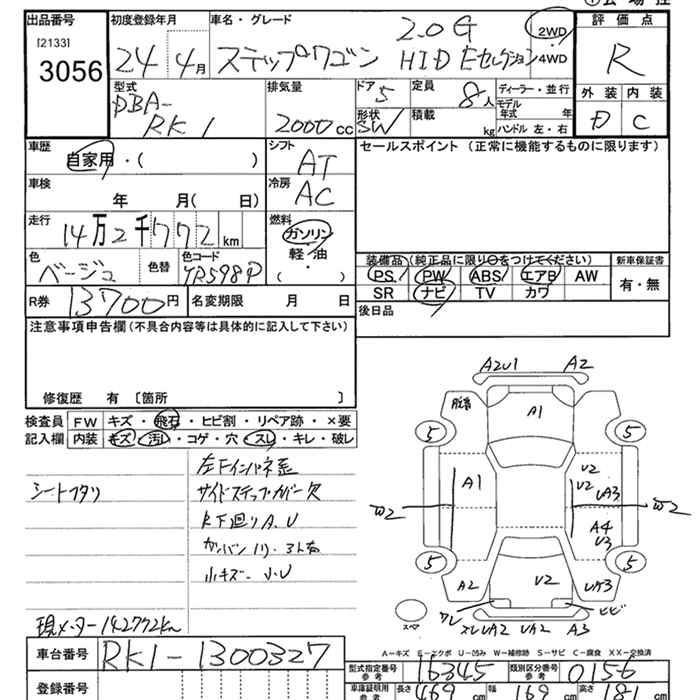 出品番号 初度登録年月 車名・グレード 2.0G 2WD 評価点
[2133] 3056 24 4月 ステップワゴン HID Eセレクション 4WD R
型式 排気量 ドア 5 定員 8人 ディーラー・並行 外装 内装
DBA-RK1 2000cc 形状 SW 積載 kg モデル年式 年 ハンドル 左・右 D C
車歴 自家用・( ) シフト AT セールスポイント (正常に機能するものに限ります)
車検 年 月( 日) 冷房 AC
走行 14万2千772km 燃料 ガソリン 軽・油 ・ ( )
色 ベージュ 色替 色コード YR598P
装備品(純正品に限り○をつけてください) 新車保証書
PS PW ABS エアB AW 有・無
SR ナビ TV カワ
R券 13700円 名変期限 月 日 後日品
注意事項申告欄(不具合内容等は具体的に記入して下さい)
修復歴 有 〔箇所 〕
検査員 FW キズ・飛石・ヒビ割・リペア跡・×要
記入欄 内装 キズ・汚レ・コゲ・穴・スレ・キレ・破レ
シートヘタリ
左下インパネ歪
サイドステップカバー欠
下廻りA.U
小キズ・小U
現メーター142772km
A2U1 A2
A1
5 5
A1 U2 U2 UA3
W2 W2
A4 U3
5 5
A2 U2 UA3
ワレ ヒビ
スレUA2 UA2 A3
スペア
A-キズ E-エクボ U-凹み W-補修跡 S-サビ C-腐食 XX-交換済
車台番号 RK1-1300327
型式指定番号 参考 16345 類別区分番号 参考 0156
登録番号 車庫証明用 参考 長さ 469cm 幅 169cm 高さ 181cm